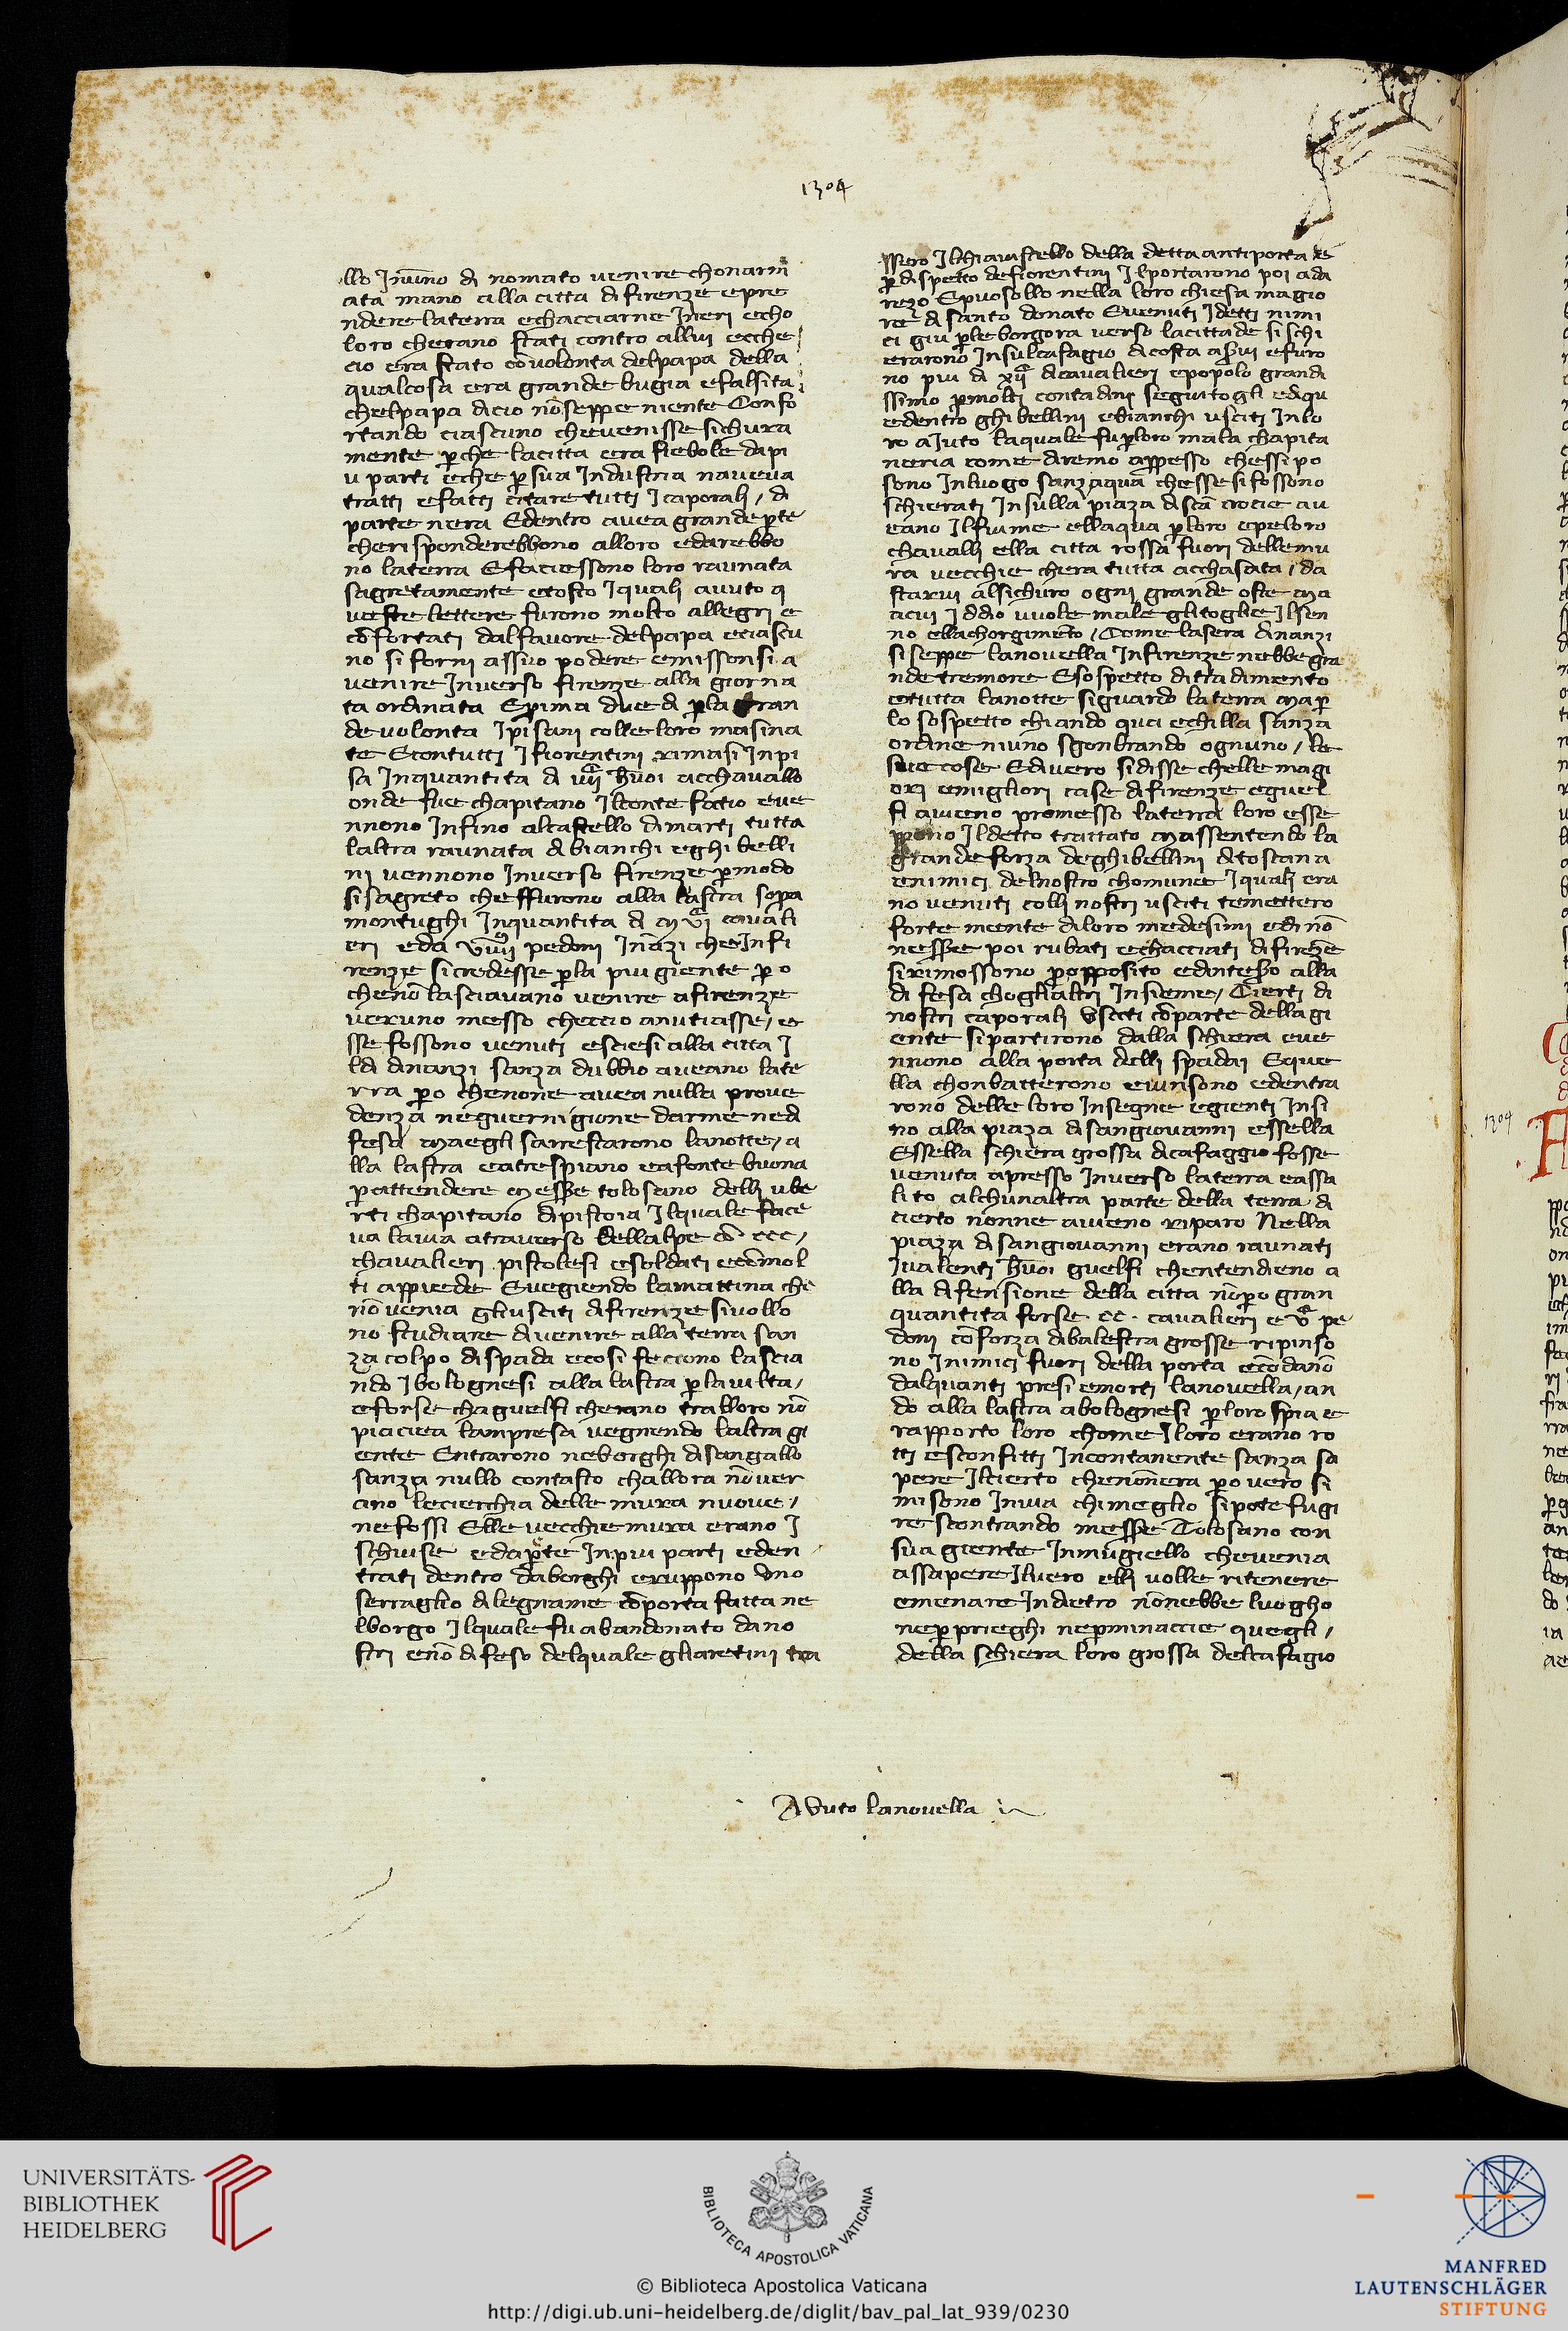 1304
llo Jnūno di nomato venire chonarm
ata mano alla citta di firenze epre
ndere laterra echacciarne Ineri echo
loro cherano stati contro allui ecche
cio era stato cōvolonta delpapa della
qualcosa era grande bugia efalsita
chelpapa dicio nōseppe niente Confo
rtando ciascuno chevenisse sichura
mente ꝑche lacitta era fiebole dapi
u parti eche ꝑ sua Industria naveva
tratti efatti citare tutti Icaporalj / di
parte nera Edentro avea grande ꝑte
cherisponderebbono alloro edarebbo
no laterra Efaciessono loro raunata
sagretamente etosto Iqualj avuto q
veste lettere furono molto allegrj e
cōfortati dalfavore delpapa eciascu
no si fornj assuo podere emissonsi a
venire Inverso firenze alla giorna
ta ordinata Eprima due di ꝑla gran
de volonta Ipisani colle loro masina
te Econtuttj J fiorentini rimasi Inpi
sa Inquantita di acchavallo
onde fue chapitano Ilconte fatio eve
nnono Infino alcastello dimarti tutta
laltra raunata di bianchi eghibelli
ni vennono Inverso firenze ꝑmodo
si sagreto cheffurono alla lastra sopa
montughi Inquantita di cavali
eri eda pedoni Ināzi cheInfi
renze sicredesse ꝑla piu giente ꝑ o
chenō lasciavano venire afirenze
veruno messo checcio anutiasse / e
sse fossono venuti esciesi alla citta J
ldi dinanzi sanza dubbio aveano late
rra ꝑo chenone avea nulla prove
denza neguernigione darme nedi
fesa maegli sarrestarono lanotte / a
lla lastra eatrespiano eafonte buona
ꝑattendere tolosano dellj ube
rti chapitano dipistoia Ilquale face
va lavia atraverso dellalpe cō ccc /
chavalierj pistolesi esoldati ecōmol
ti appiede Evegiendo lamattina che
nō venia gliusciti difirenze sivollo
no studiare divenire alla terra san
za colpo dispada ecosi feciono lascia
ndo Jbolognesi alla lastra ꝑlavilta /
eforse chaguelfi cherano tralloro nō
piaciea lampresa vegnendo laltra gi
ente Entrarono neborghi disangallo
sanza nullo contasto challora nōver
ano lecierchia delle mura nuove /
nefossi Elle vecchie mura erano J
schiuse edaꝑte Inpiu parti eden
trati dentro daborghi eruppono uno
serraglio dilegname cōporta fatta ne
lborgo Ilquale fu abandonato dano
stri enō difeso delquale gliaretini tra
ssero Ilchiavistello della detta antiporta e
ꝑ dispetto defiorentini Ilportarono poi ada
rezo Epuosollo nella loro chiesa magio
re di santo donato Evenuti Idetti nimi
ci giu ꝑle borgora verso lacittade sischi
erarono Insulcafagio dicosta aservi efuro
no piu di dicavalieri epopolo grandi
ssimo ꝑmolti contadini seguitogli ediqu
edentro ghibellini ebianchi usciti Inlo
ro aIuto laquale fu ꝑloro mala chapita
neria come diremo appresso chessi po
sono Inluogo sanzaqua chesse si fossono
schierati Insulla piaza discā crocie av
eano Ilfiume ellaqua ꝑloro epeloro
chavallj ella citta rossa fuori dellemu
ra vecchie chera tutta acchasata / da
starvi alsichuro ogni grande oste ma
acui Iddio vuole male glitoglie Ilsen
no ellachorgimēto / Come lasera dinanzi
si seppe lanovella Infirenze nebbe gra
nde tremore Esospetto ditradimento
etutta lanotte siguardo laterra maꝑ
lo sospetto chiando qua echilla sanza
ordine niuno sgonbrando ognuno / le
sue cose Edivero sidisse chelle magi
ori emigliori case difirenze eguel
fi aveno promesso laterra loro esse
Ildetto trattato massentendo la
grande forza deghibellini ditoscana
enimici delnostro chomune Iqualj era
no venuti collj nostri usciti temettero
fortemente diloro medesimi edi nō
nessere poi rubati echacciati difirenze
sirimossono ꝑopposito edinteso alla
difesa chogliāltrj Insieme / Cierti di
nostri caporalj usciti cōparte dellagi
ente sipartirono dalla schiera eve
nnono alla porta dellj spadai Eque
lla chonbatterono evinsono edentra
rono delle loro Insegne egienti Insi
no alla piaza disangiovanni essella
Essella schiera grossa dicafaggio fosse
venuta apresso Inverso laterra eassa
lito alchunaltra parte della terra di
cierto nonne aveno riparo Nella
piaza di sangiovanni erano raunati
Ivalenti guelfi chentendieno a
lla difensione della citta nōꝑo gran
quantita forse cc. cavalieri e pe
doni cōforza dibalestra grosse ripinso
no Inimici fuori della porta ecōdāno
dalquanti presi emorti lanovella / an
do alla lastra abolognesi ꝑ loro spia e
rapporto loro chome Iloro erano ro
tti esconfitti Incontanente sanza sa
pere Ilcierto chenōnera ꝑo vero si
misono Invia chimeglio sipote fugi
re scontrando messere Tolosano con
sua giente Inmugiello chevenia
assapere Ilvero ellj volle ritenere
emenare Indietro nōnebbe luogho
neꝑ prieghi neꝑminaccie quegli /
della schiera loro grossa delcafagio
Avuto lanovella
1304
UNIVERSITÄTS-
BIBLIOTHEK
HEIDELBERG
BIBLIOTECA APOSTOLICA VATICANA
© Biblioteca Apostolica Vaticana
http://digi.ub.uni-heidelberg.de/diglit/bav_pal_lat_939/0230
MANFRED
LAUTENSCHLÄGER
STIFTUNG